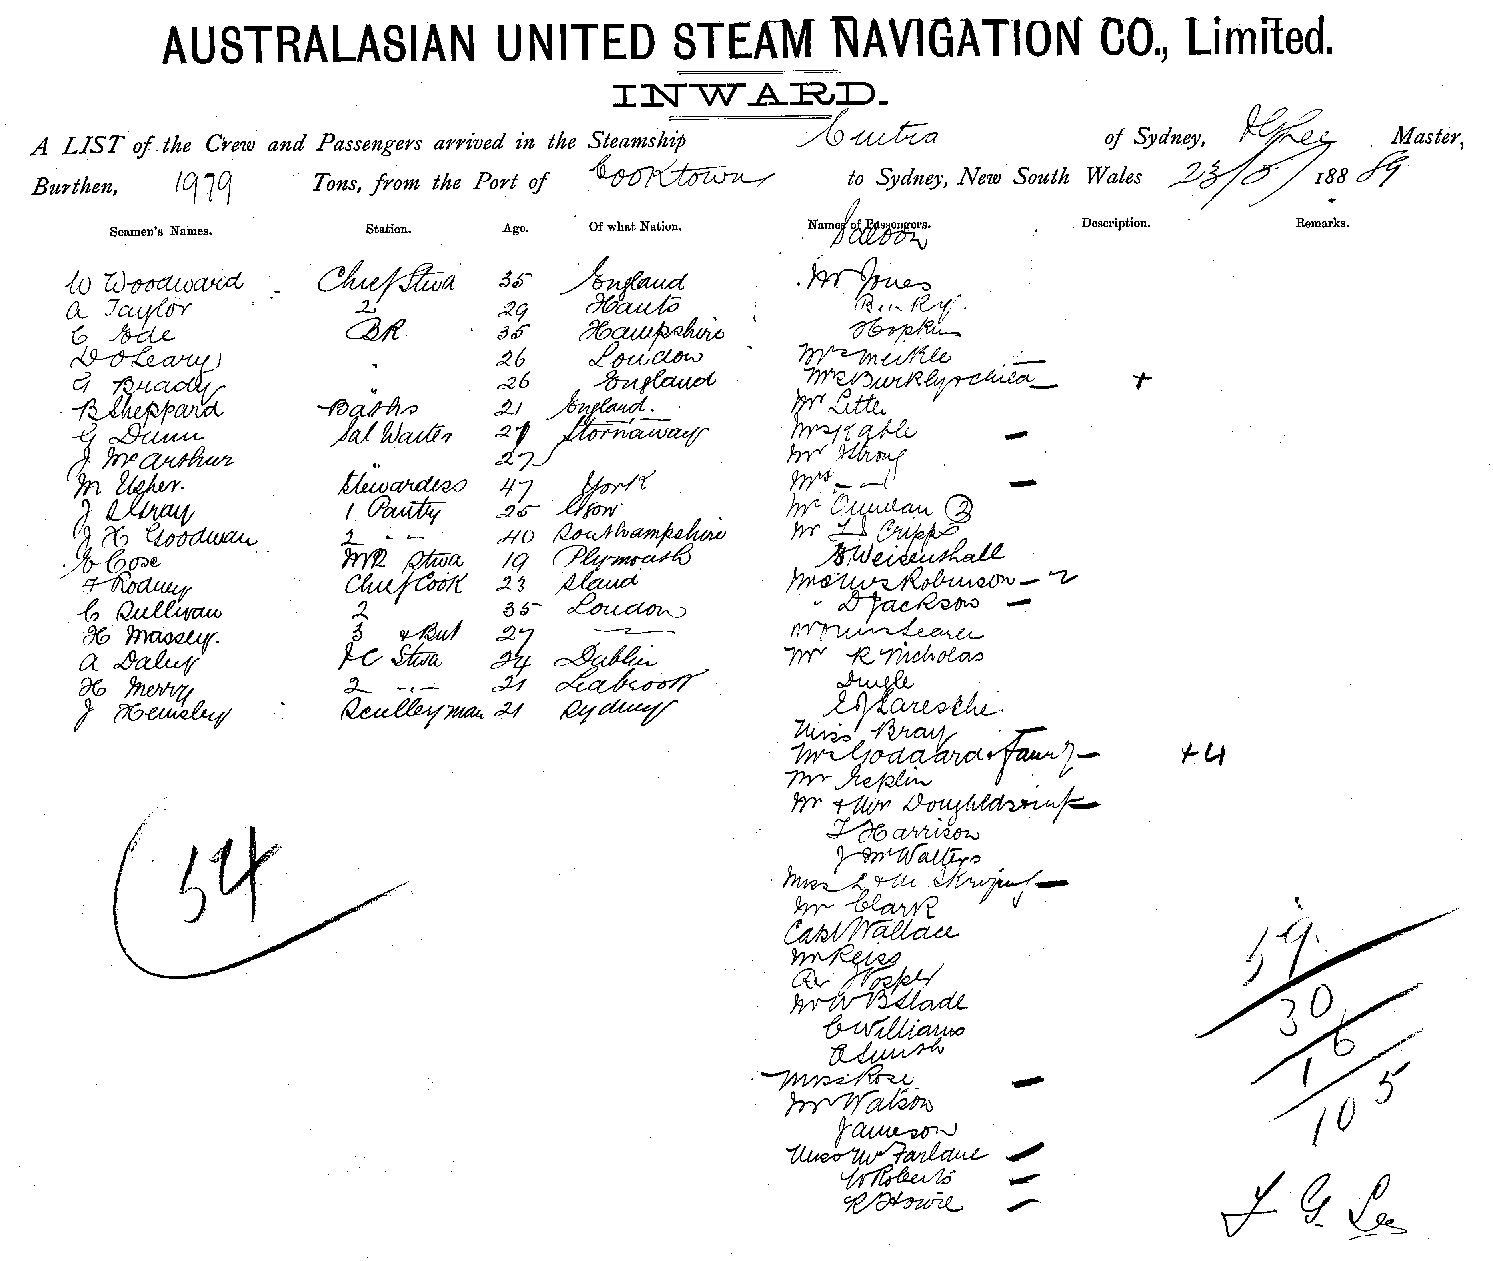 AUSTRALASIAN UNITED STEAM NAVIGATION CO., Limited.
INWARD.
A LIST of the Crew and Passengers arrived in the Steamship of Sydney, Master,
Burthen, 1979 Tons, from the Port of Cooktown to Sydney, New South Wales 23/5/ 188 89
Seamen's Names. Station. Age. Of what Nation. Names of Passengers. Description. Remarks.
Saloon
W Woodward Chief Stwd 35 England Mr Jones
A Taylor 2 29 Hants
C Ede BR 35 Hampshire Hopkins
D O'Leary " 26 London Mrs Meikle
G Brady 26 England Mrs Burkly & child — +
B Sheppard Baths 21 England. Mr Lette
G Dunn Sal Waiter 27 Stornaway Mrs Kable —
J McArthur " 27 Mr Strong
M Usher. Stewardess 47 York Mrs — —
J S Gray 1 Pantry 25 Mr Quinlan 2
J H Goodwan 2 " 40 Southampshire Mr Cripps
E Cose MR Stwd 19 Plymouth Weisenshall
F Rodney Chief Cook 23 Mr & Mrs Robinson — 2
C Sullivan 2 35 London " D Jackson —
H Massey. 3 & But 27 —
A Daley FC Stwd 24 Dublin Mr R Nicholas
H Merry 2 " 21 Dingle
J Hemsley Sculleryman 21 Sydney
Miss Bray
Mrs Goddard & Family — +4
Mr
Mr & Mrs
T Harrison
J McWalters
Miss L & M —
Mr Clark
Capt Wallace
Mr Reiss
Hosper
Mr W B Slade
C Williams
A Smith
Miss Rose —
Mr Watson
Jameson
Miss McFarlane —
W Roberts —
R Howie —
54
59
30
16
105
J G Lee